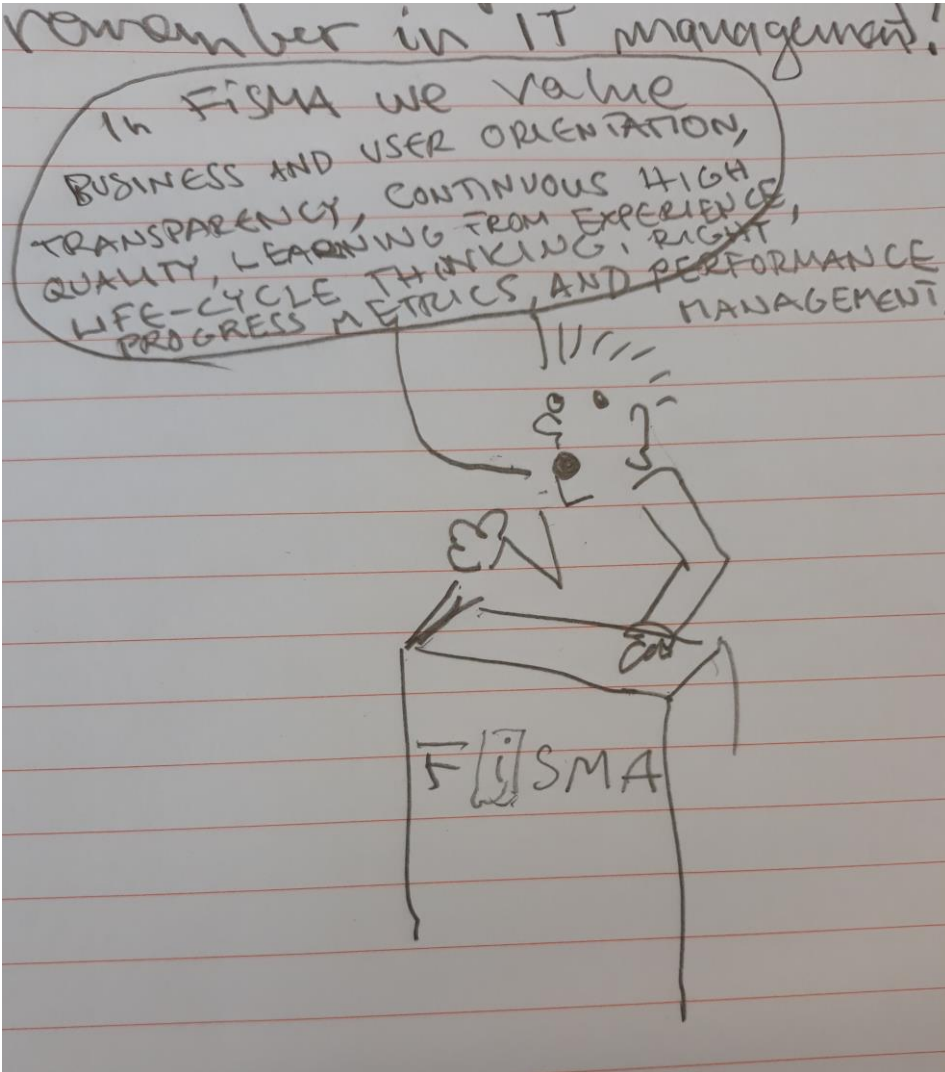 remember in IT management!
In FiSMA we value
BUSINESS AND USER ORIENTATION,
TRANSPARENCY, CONTINUOUS HIGH
QUALITY, LEARNING FROM EXPERIENCE,
LIFE-CYCLE THINKING, RIGHT
PROGRESS METRICS, AND PERFORMANCE
MANAGEMENT
FiSMA